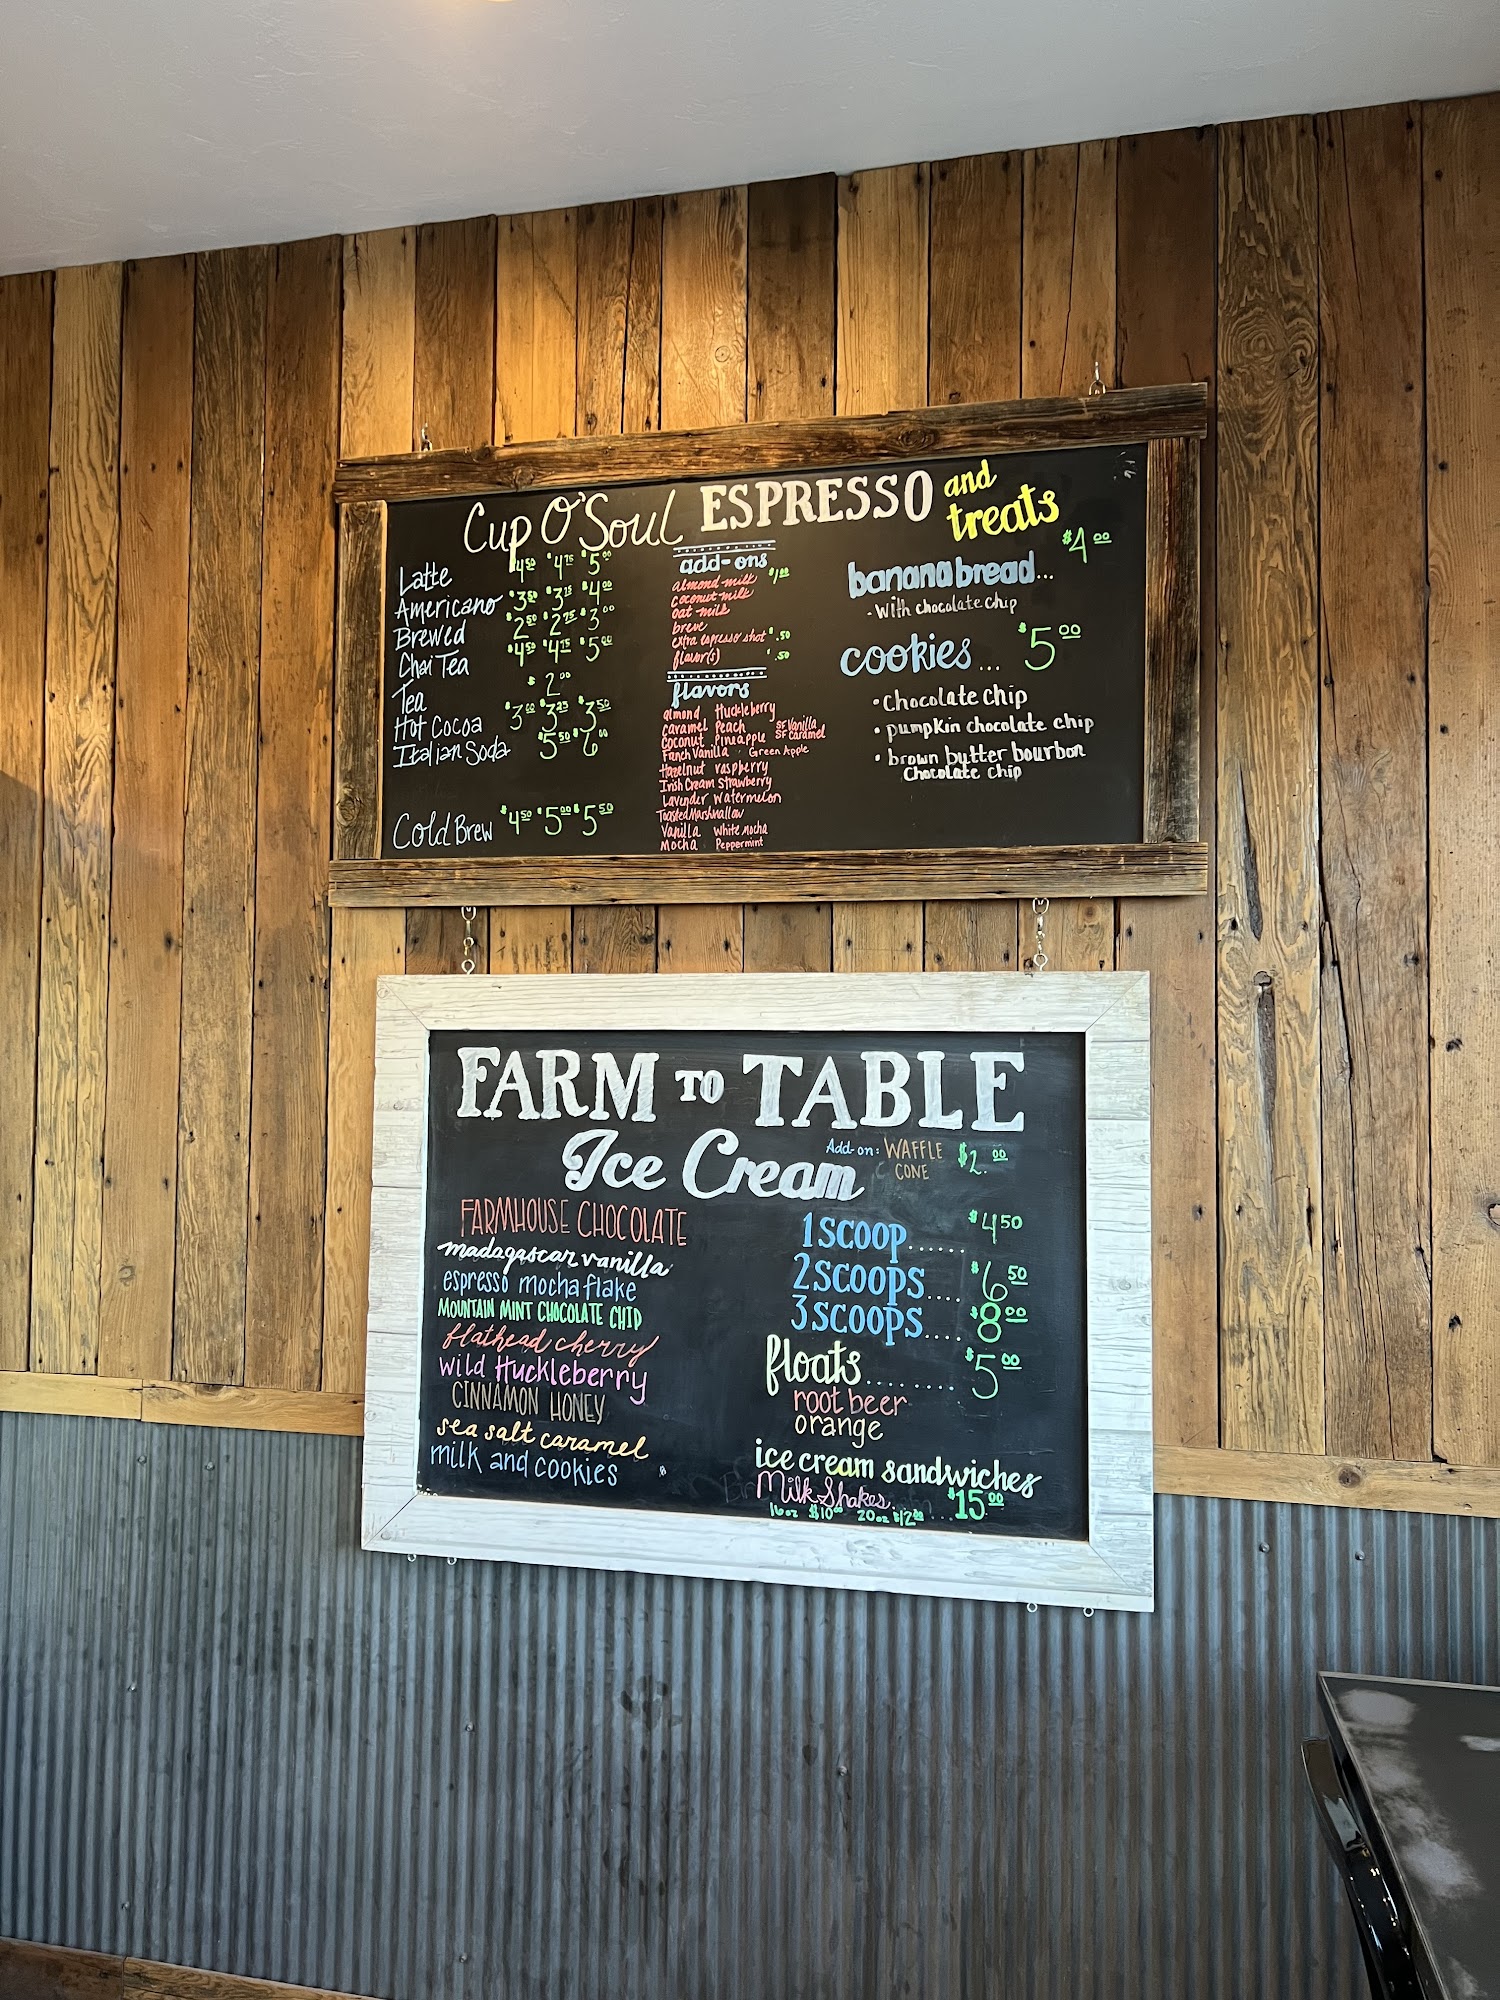 Cup O'Soul ESPRESSO and treats
Latte $4.50 $4.75 $5.00
Americano $3.50 $3.75 $4.00
Brewed $2.50 $2.75 $3.00
Chai Tea $4.50 $4.75 $5.00
Tea $2.00
Hot Cocoa $3.00 $3.25 $3.50
Italian Soda $5.50 $6.00
Cold Brew $4.50 $5.00 $5.50
add-ons
almond milk $1.00
coconut milk
oat milk
breve
extra espresso shot $.50
flavor(s) .50
flavors
almond Huckleberry
caramel Peach SF Vanilla
Coconut Pineapple SF Caramel
French Vanilla Green Apple
Hazelnut raspberry
Irish Cream Strawberry
Lavender Watermelon
Toasted Marshmallow
Vanilla White Mocha
Mocha Peppermint
banana bread... $4.00
- With chocolate chip
cookies... $5.00
• Chocolate chip
• pumpkin chocolate chip
• brown butter bourbon
Chocolate chip
FARM TO TABLE
Ice Cream
Add-on: WAFFLE CONE $2.00
FARMHOUSE CHOCOLATE
madagascar vanilla
espresso mocha flake
MOUNTAIN MINT CHOCOLATE CHIP
flathead cherry
wild Huckleberry
CINNAMON HONEY
sea salt caramel
milk and cookies
1 SCOOP...... $4.50
2 SCOOPS.... $6.50
3 SCOOPS.... $8.00
floats......... $5.00
root beer
orange
ice cream sandwiches
Milk Shakes ... $15.00
16oz $10.00 20oz $12.00